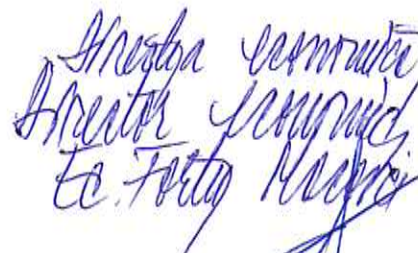 Direcția economică
Director economic
Ec. Fortiș